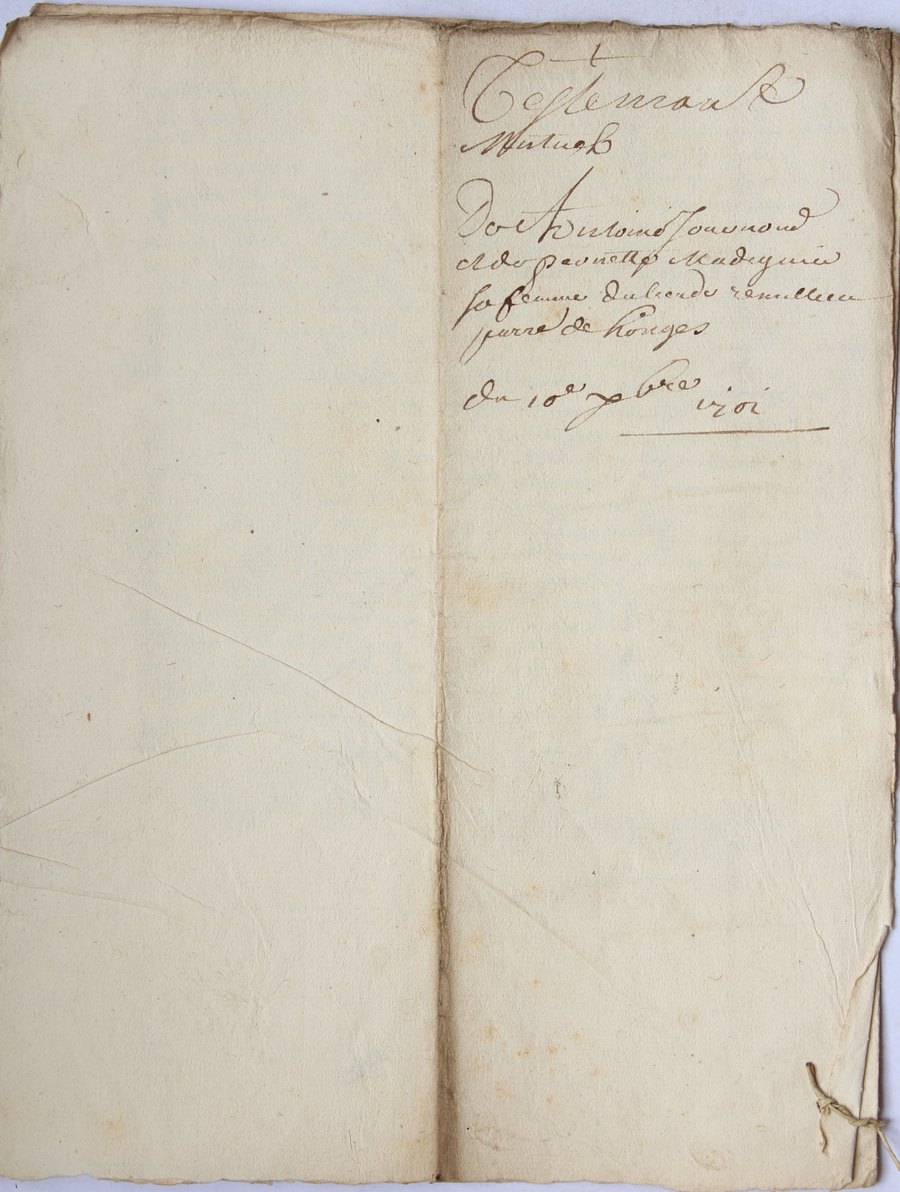 Testemant
Mutuel
De Antoine Jouvnond
et de pernette Madignier
sa femme du lieu de
parre de Longes
du 10e xbre 1701